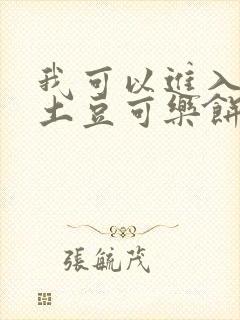 我可以進入
土豆可樂餅
張毓茂